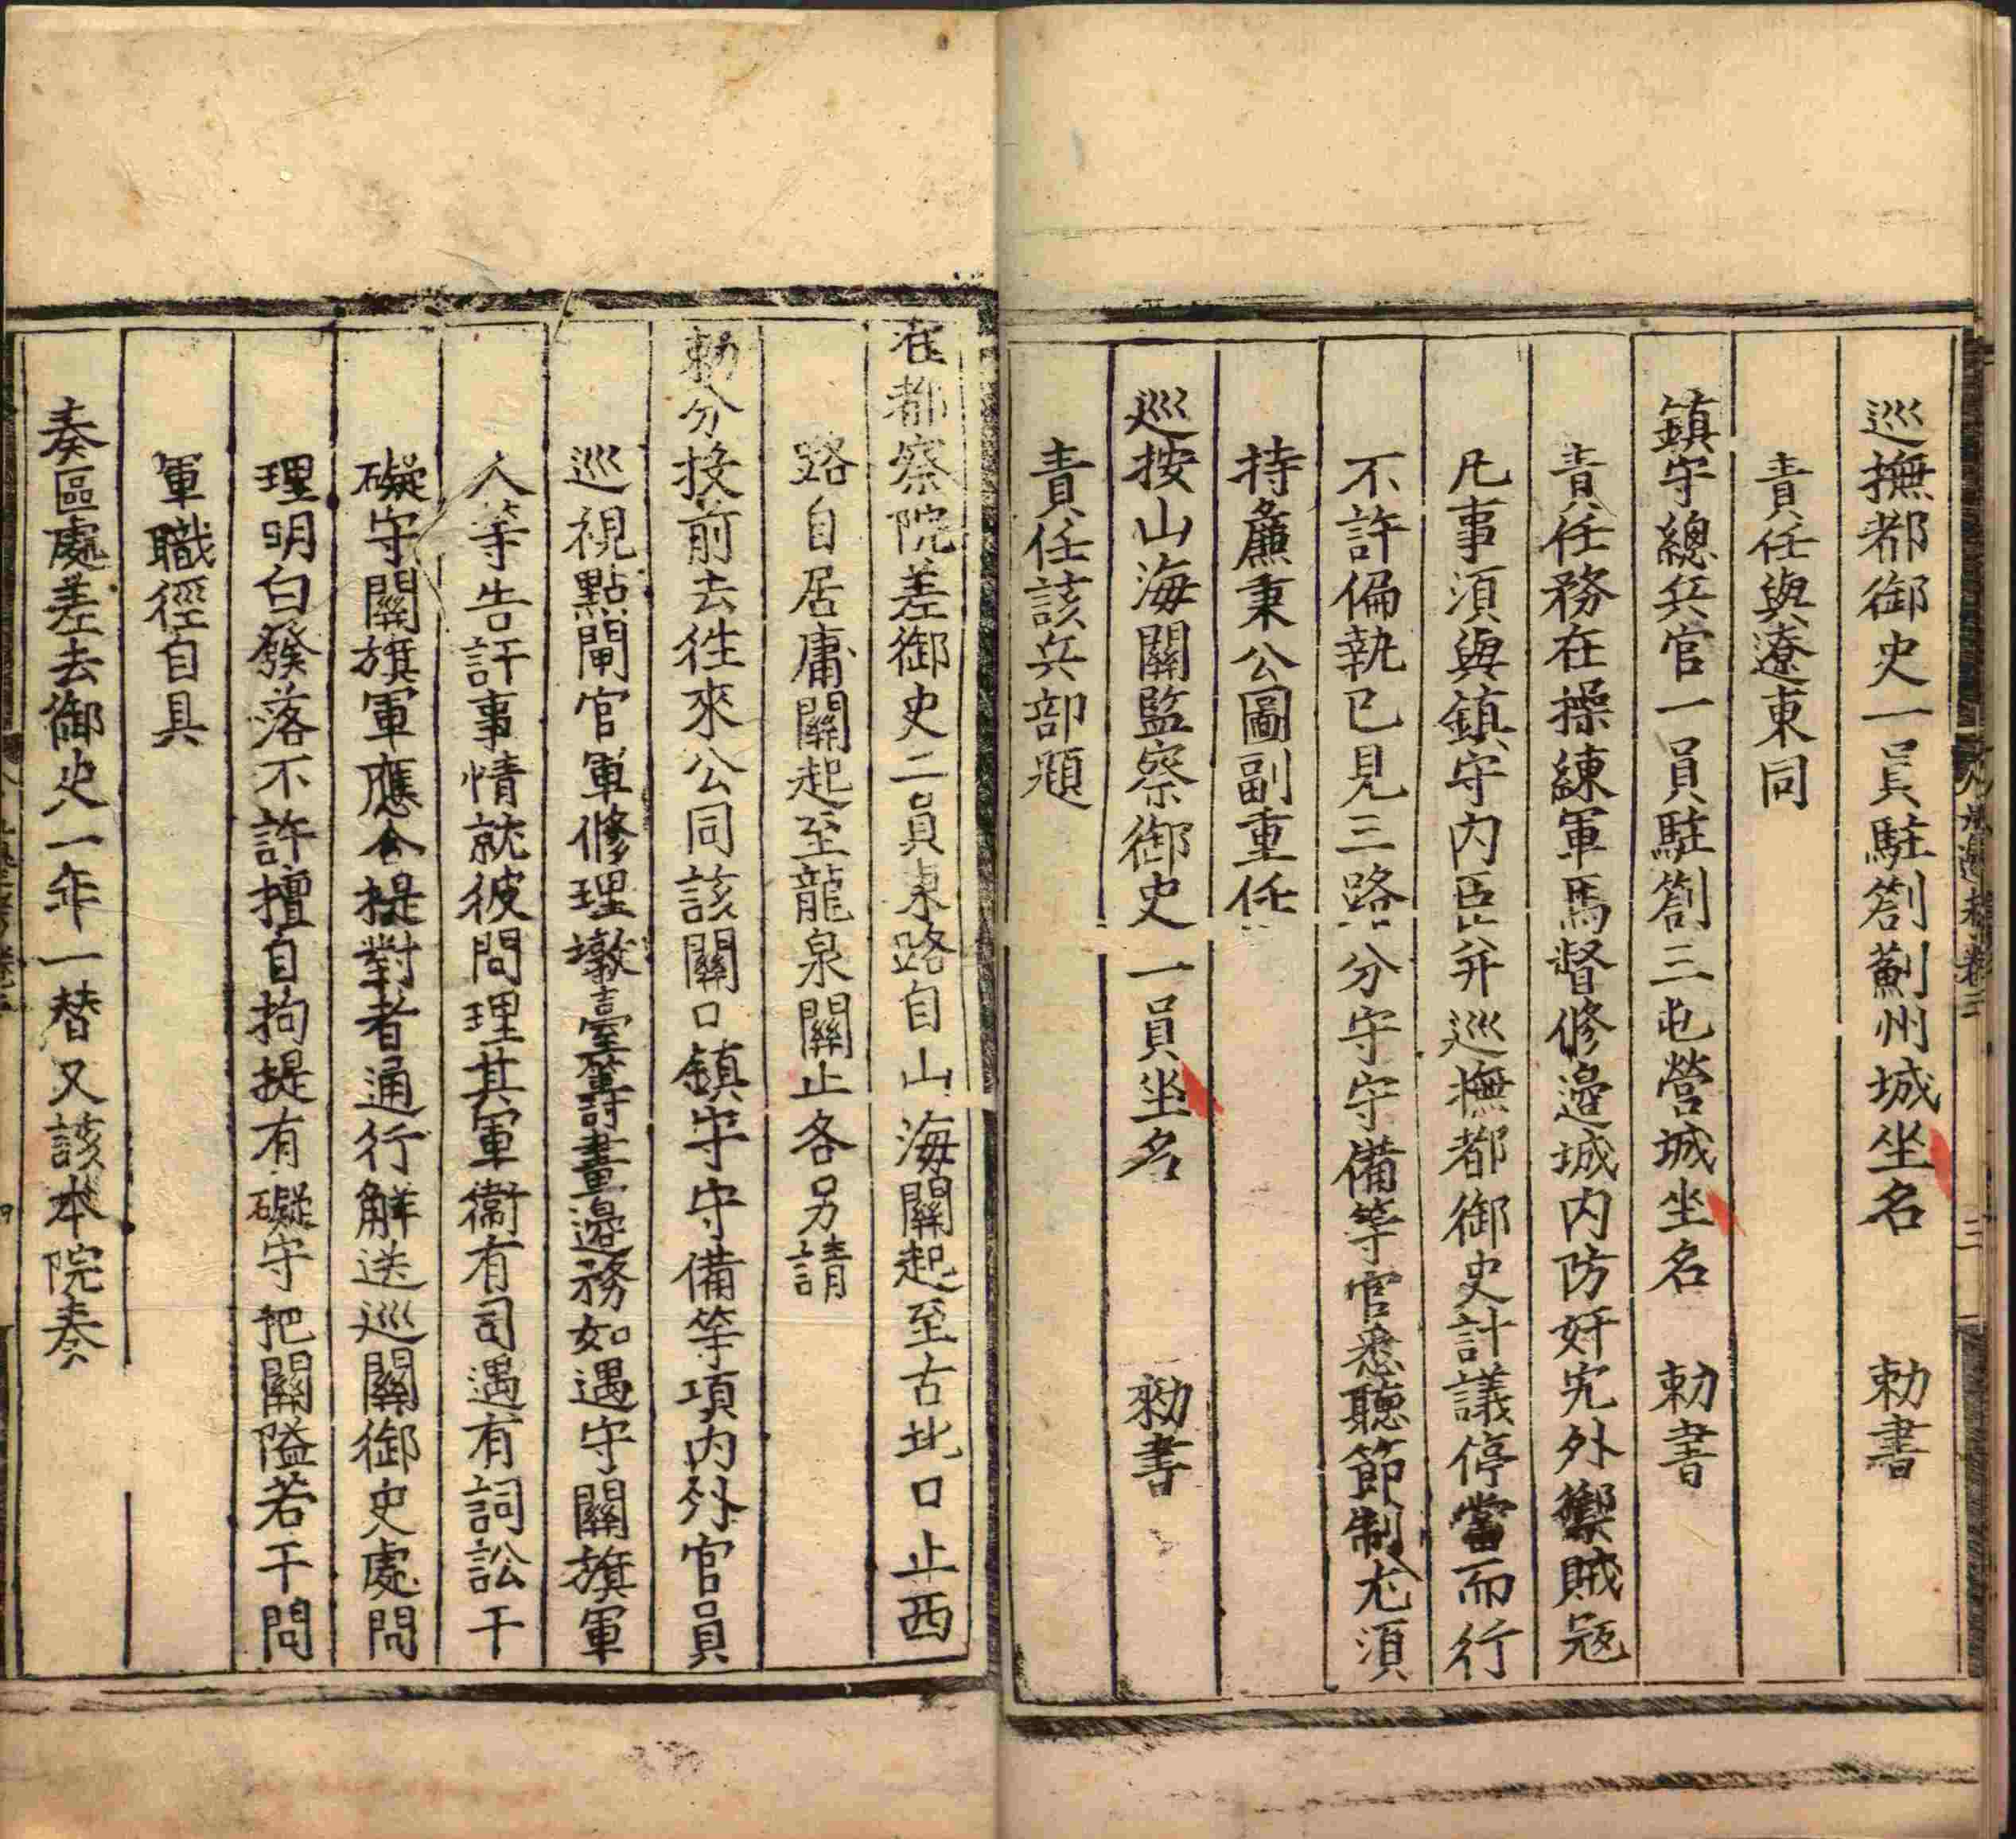 巡撫都御史一員駐劄薊州城坐名　勅書
責任與遼東同
鎮守總兵官一員駐劄三屯營城坐名　勅書
責任務在操練軍馬督修邊城内防奸宄外禦賊宼
凡事須與鎮守内臣并巡撫都御史計議停當而行
不許偏執已見三路分守守備等官悉聽節制尤須
持廉秉公圖副重任
巡按山海關監察御史一員坐名　勑書
責任該兵部題
准都察院差御史二員東路自山海關起至古北口止西
路自居庸關起至龍泉關止各另請
勅分投前去徃來公同該關口鎮守守備等項内外官員
巡視點閘官軍修理墩臺籌畫邊務如遇守關旗軍
人等告訐事情就彼問理其軍衞有司遇有詞訟干
礙守關旗軍應合提對者通行觧送巡關御史處問
理明白發落不許擅自拘提有礙守把關隘若干問
軍職徑自具
奏區處差去御史一年一替又該本院奏